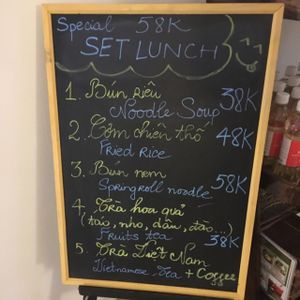 Special 58K
SET LUNCH
1. Bún riêu
Noodle Soup 38K
2. Cơm chiên thố 48K
Fried Rice
3. Bún nem 58K
Springroll noodle
4. Trà hoa quả
(táo, nho, dâu, đào...)
Fruits tea 38K
5. Trà Việt Nam
Vietnamese Tea + Coffee